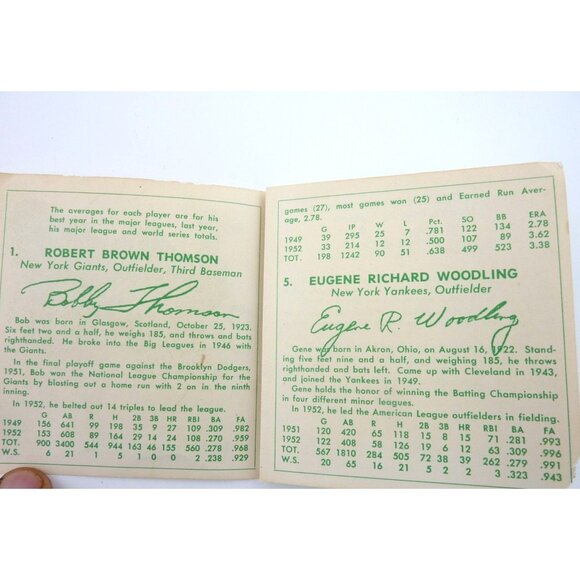 The averages for each player are for his
best year in the major leagues, last year,
his major league and world series totals.
1. ROBERT BROWN THOMSON
New York Giants, Outfielder, Third Baseman
Bobby Thomson
Bob was born in Glasgow, Scotland, October 25, 1923.
Six feet two and a half, he weighs 185, and throws and bats
righthanded. He broke into the Big Leagues in 1946 with
the Giants.
In the final playoff game against the Brooklyn Dodgers,
1951, Bob won the National League Championship for the
Giants by blasting out a home run with 2 on in the ninth
inning.
In 1952, he belted out 14 triples to lead the league.
G AB R H 2B 3B HR RBI BA FA
1949 156 641 99 198 35 9 27 109 .309 .982
1952 153 608 89 164 29 14 24 108 .270 .959
TOT. 900 3400 544 944 163 46 155 560 .278 .968
W.S. 6 21 1 5 1 0 0 2 .238 .929
games (27), most games won (25) and Earned Run Aver-
age, 2.78.
G IP W L Pct. SO BB ERA
1949 39 295 25 7 .781 122 134 2.78
1952 33 214 12 12 .500 107 89 3.62
TOT. 198 1242 90 51 .638 499 523 3.38
5. EUGENE RICHARD WOODLING
New York Yankees, Outfielder
Eugene R. Woodling
Gene was born in Akron, Ohio, on August 16, 1922. Stand-
ing five feet nine and a half, and weighing 185, he throws
righthanded and bats left. Came up with Cleveland in 1943,
and joined the Yankees in 1949.
Gene holds the honor of winning the Batting Championship
in four different minor leagues.
In 1952, he led the American League outfielders in fielding.
G AB R H 2B 3B HR RBI BA FA
1951 120 420 65 118 15 8 15 71 .281 .993
1952 122 408 58 126 19 6 12 63 .309 .996
TOT. 567 1810 284 505 72 38 39 262 .279 .991
W.S. 20 65 16 21 5 2 2 3 .323 .943